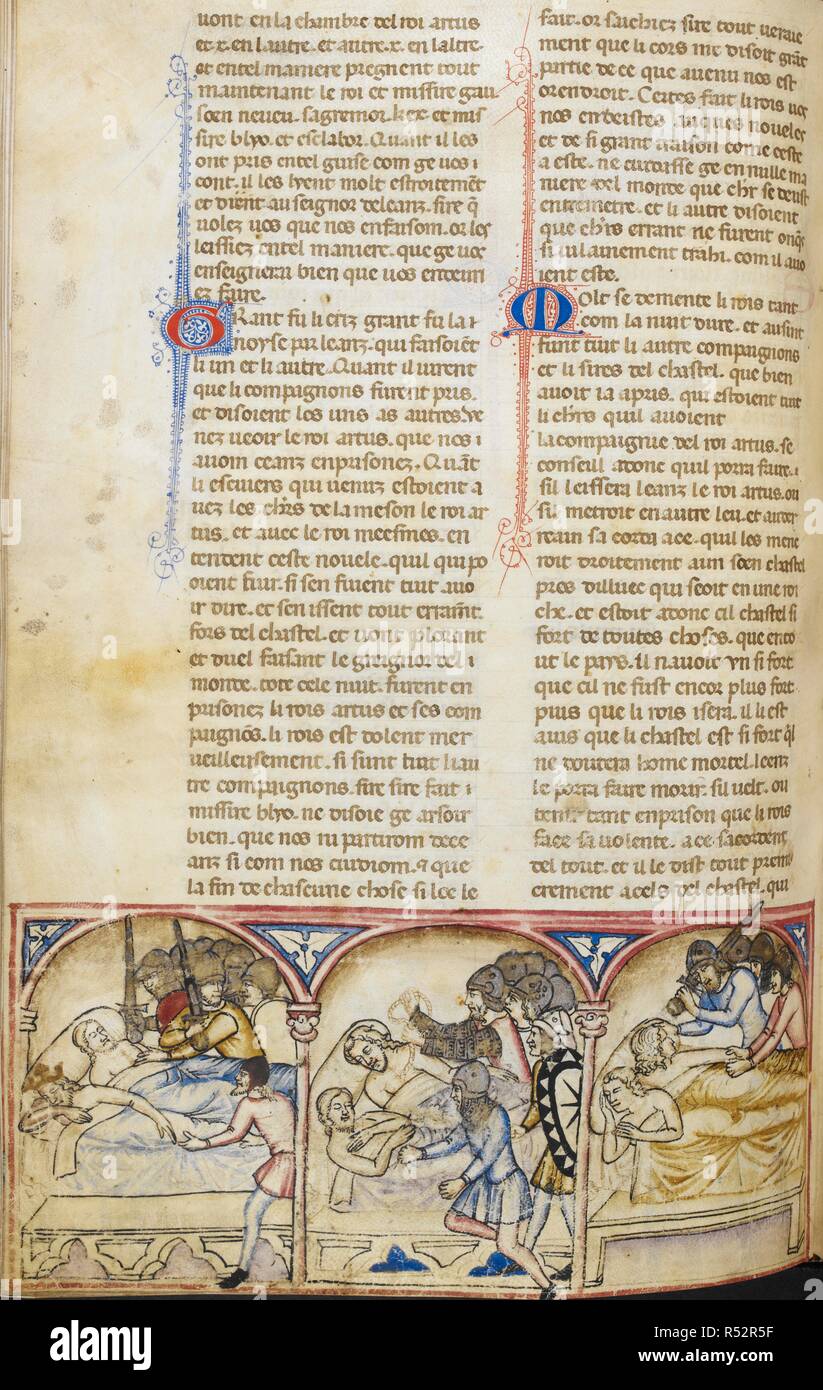 uont en la chambre del roi artus
et .x. en lautre. et autre .x. en laltre.
et entel maniere pregnent tout
maintenant le roi et missire gau
soen neueu. sagremor. kex. et mis
sire blyo. et esclabor. Quant il les
ont pris entel guise com ge uos
cont. il les lyent molt estroitemēt
et dient au seignor de leanz. sire q̄
uolez uos que nos enfaisom. or les
leissiez entel maniere. que ge uos
enseignerai bien que uos en deuri
ez faire.
GRant fu li criz grant fu la
noyse par leanz. qui faisoiēt
li un et li autre. Quant il uirent
que li compaignons furent pris.
et disoient les uns as autres. Ve
nez ueoir le roi artus. que nos
auom ceanz enprisonez. Quāt
li escuiers qui uenuz estoient a
uez les chrs de la meson le roi ar
tus. et auec le roi meesmes. en
tendent ceste nouele. quil qui po
oient fuir. si sen fuient tuit. auo
ir dire. et sen issent tout erraūt.
fors del chastel. et uont plorant
et duel faisant le greignor del
monde. tote cele nuit. furent en
prisonez li rois artus et ses com
paignōs. li rois est dolent mer
ueilleusement. si sunt tuit li au
tre compaignons. sire sire fait
missire blyo. ne disoie ge arsoir
bien. que nos ni partirom de ce
anz si com nos cuidiom. que
la fin de chascune chose si lee le
fait. or sachiez sire tout ueraie
ment que li cors me disoit grāt
partie de ce que auenu nos est
orendroit. Certes fait li rois uos
nos en deistes auques noueles
et de si grant traison come ceste
a este. ne cuidasse ge en nulle ma
niere del monde que chr se deust
entremetre. et li autre disoient
que chrs errant ne furent onqs
si uilainement trahi. com il auo
ient este.
MOlt se demente li rois tant
com la nuit dure. et ausint
funt tuit li autre compaignons
et li sires del chastel. que bien
auoit ia apris. qui estoient tuit
li chrs quil auoient
la compaignie del roi artus. se
conseill adonc quil porra faire.
sil leissera leanz le roi artus. ou
sil metroit en autre leu. et au der
reain sa corda a ce. quil les mene
roit droitement a un soen chastel
pres dilluec qui seoit en une ro
che. et estoit adonc cil chastel si
fort de toutes choses. que en to
ut le pays. il nauoit yn si fort
que cil ne fust encor plus fort
puis que li rois i sera. il li est
auis que li chastel est si fort ql
ne doutera home mortel. leenz
le porra faire morir. sil uelt. ou
tenir tant enprison que li rois
face sa uolente. a ce sacordent
del tout. et il le dist tout premi
erement a cels del chastel. qui
alamy
Image ID: R52R5F
www.alamy.com